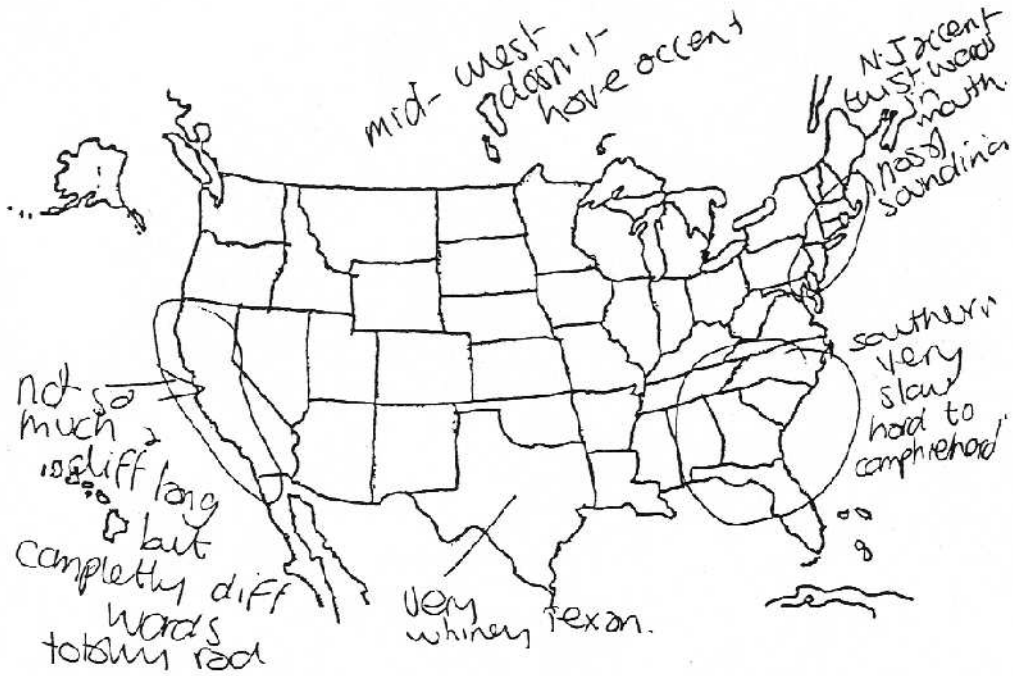 mid- west
doesn't
have accent
N.J accent
twist words
in
mouth.
nasal
sounding
southern
very
slow
hard to
comphrehend
not so
much a
diff lang
but
completly diff
words
totolly rad
very
whiney Texan.